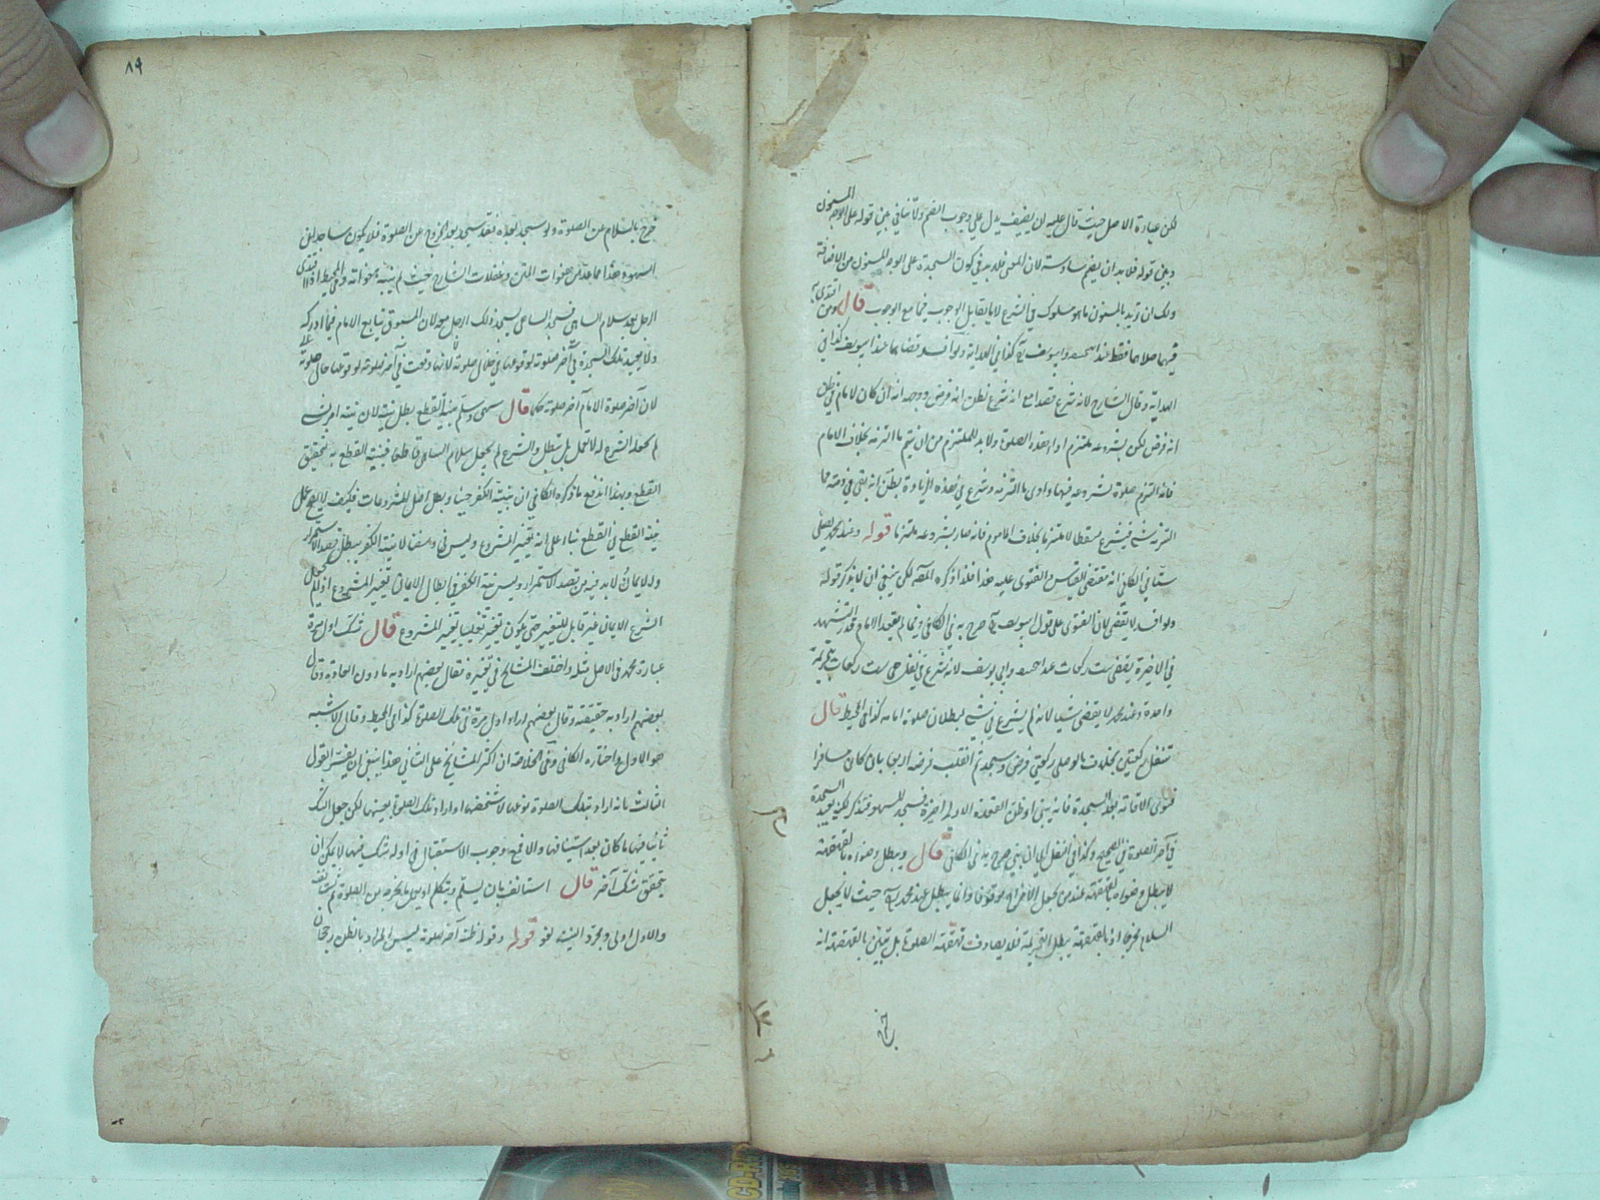 لكن عبارة الاصل حيث قال عليه ان يضيف يدل على وجوب الضم ولا ينافي بين قوله على الوجه المسنون
وبين قوله فلا بد ان يضم سادسة لان المعنى فلا بد في كون السجدة على الوجه المسنون من الاضافة
ولك ان تريد بالمسنون ما هو مسلوك في الشرع لا ما يقابل الوجوب فيجامع الوجوب قال ومن اقتدى به
فيهما صلاهما فقط عند وابي يوسف كذا في الهداية ولو افسد قضاهما عند ابي يوسف كذا في
الهداية وقال الشارح لانه شرع قصدا مع انه شرع بظن انه فرض ووجهه انه ان كان الامام في ظن
انه فرض لكن بشروعه ملتزم اداء هذه الصلوة ولا بد للملتزم من ان يتم ما التزمه بخلاف الامام
فانه التزم صلوة بشروعه فيها وادى ما التزمه وشرع في هذه الزيادة بظن انه بقي في ذمته مما
التزمه شيء فيشرع مسقطا لا ملتزما بخلاف المأموم فانه صار بشروعه ملتزما قوله وعند محمد يصلي
ستا في الكافي انه مقتضى القياس والفتوى عليه هذا فلذا ذكره المصنف لكن ينبغي ان لا يذكر قوله
ولو افسد لا يقضي لان الفتوى على قول ابي يوسف صرح به في الكافي ولو لم يقعد الامام قدر التشهد
في الاخيرة يقضي ست ركعات عند وابي يوسف لانه شرع في نفل هي ست ركعات بتحريمة
واحدة وعند محمد لا يقضي شيئا لانه لم يشرع في شيء لبطلان صلوة امامه كذا في المحيط قال
تنفل ركعتين بخلاف ما لو صلى ركعتي فرض وسجد ثم انقلب فرضه اربعا بان كان مسافرا
فنوى الاقامة بعد السجدة فانه يبني او ظن القعدة الاولى اخيرة فسجد للسهو فتذكر لكن يعيد السجدة
في آخر الصلوة في الصحيح وكذا في النفل ان بنى صرح به في الكافي قال ويبطل وضوءه بالقهقهة
لا يبطل وضوءه بالقهقهة عند من يجعل الاخراج موقوفا وانما يبطل عند محمد حيث لا يجعل
السلام مخرجا اذ بالقهقهة يبطل التحريمة فلا يصادف قهقهته الصلوة بل تبين بالقهقهة انه
خرج
٨٩
خرج بالسلام عن الصلوة ولو سجد بعده فقد سجد بعد الخروج عن الصلوة فلا يكون ساجدا في
السهو هذا مما عد من هفوات المتن وغفلات الشارح حيث لم ينبه بهفواته وفي المحيط اذا اقتدى
الرجل بعد سلام الساهي فسجد الساهي يسجد ذلك الرجل معه لان المسبوق يتابع الامام فيما ادركه
ولا يعيد تلك السجدة في آخر صلوته لوقوعها في خلال صلوته لانها وقعت في آخر صلوته لوقوعها حال صلوته
لان آخر صلوة الامام آخر صلوته حكما قال سهى وسلم بنية القطع بطل نيته لان نيته امر
لم يجعله الشرع له لا تعمل بل تبطل والشرع لم يجعل سلام الساهي قاطعا فبنيته القطع به لا يتحقق
القطع وبهذا اندفع ما ذكره الكافي ان بنية الكفر حينا وبطل افضل المشروعات فكيف لا يصح عمل
نية القطع في القطع بناء على انه تغيير المشروع وليس في وسعنا لا بنية الكفر يبطل قصد الاستمرار
ولا ايمان لا بد فيه من قصد الاستمرار وليس نية الكفر في ابطال الايمان تغيير المشروع اذ لم يجعل
الشرع الايمان غير قابل للتغيير حتى يكون تغييره تغليبا بغير المشروع قال شك اول مرة
عبارة محمد في الاصل مثله واختلف المشايخ في تفسيره فقال بعضهم اراد به ما دون العادة وقال
بعضهم اراد به حقيقته وقال بعضهم اراد اول مرة في تلك الصلوة كذا في المحيط وقال الاشبه
هو الاول واختاره الكافي وفي الخلاصة ان اكثر المشايخ على الثاني هذا ينبغي ان يفسر القول
الثالث بانه اراد بتلك الصلوة نوعها لا شخصها او اراد تلك الصلوة بعينها لكن جعل الشك
ثانيا فيها ما كان بعد استينافها والا فمع وجوب الاستقبال في اوله شك فيها لا يمكن ان
يتحقق شك آخر قال استأنف بان يسلم ويتكلم او يعمل ما يخرجه عن الصلوة ثم يستأنف
والاول اولى ومجرد النية لغو قوله وقوله ظنه آخر صلوته ليس المراد بالظن رجحان